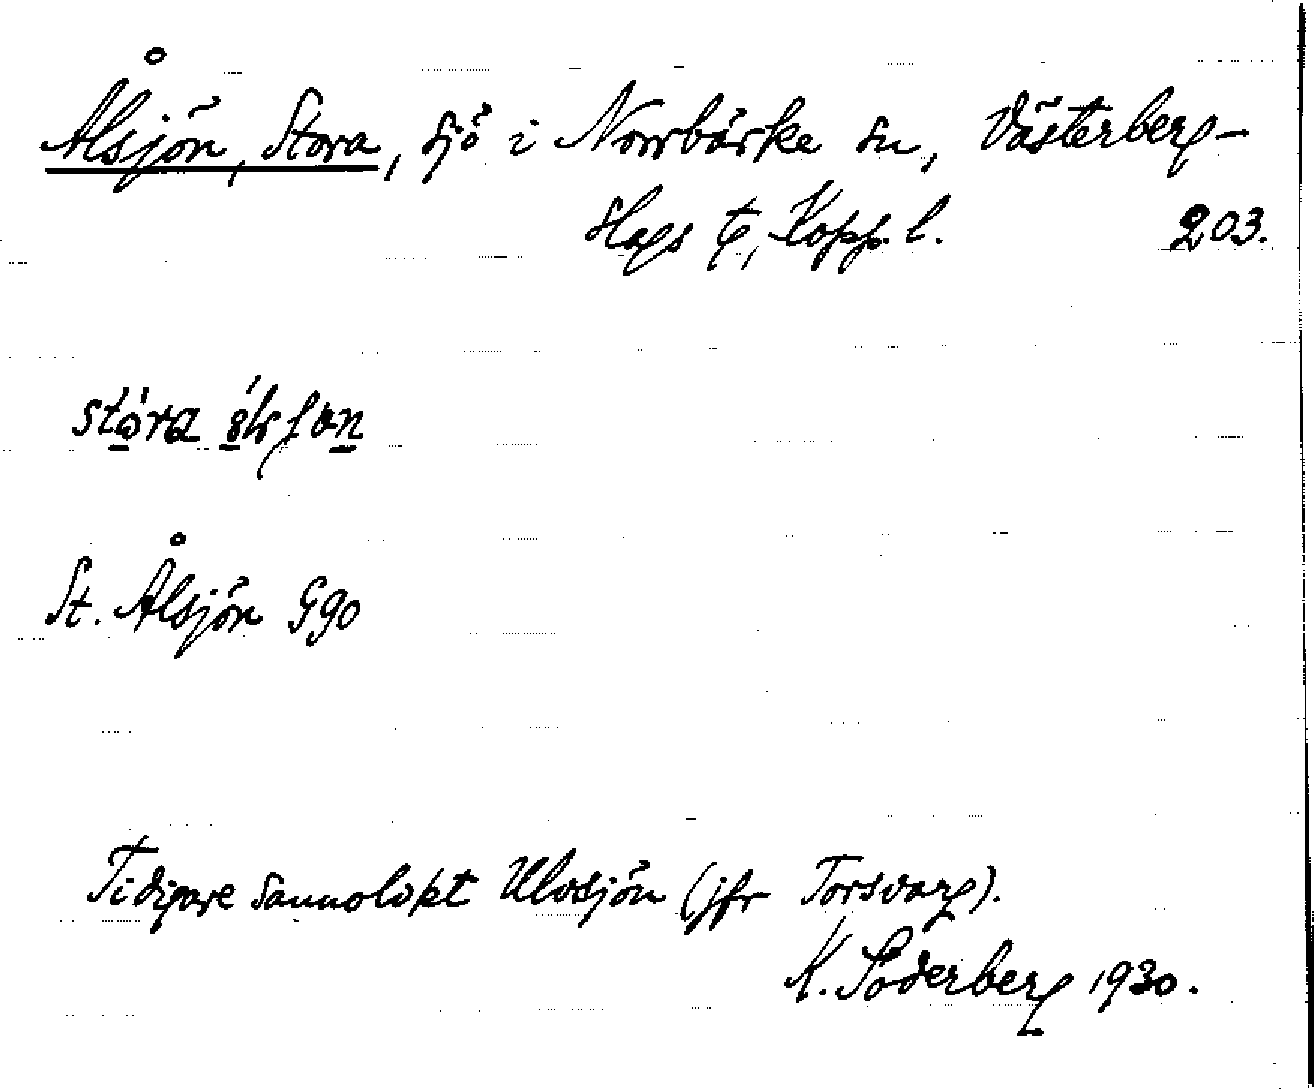 Ålsjön, Stora, sjö i Norrbärke sn, Västerberg-
slags tg, Kopp. l. 203.
stóra
St. Ålsjön G90
Tidigare sannolikt Ulvsjön (jfr Torsvarg).
K. Söderberg 1930.